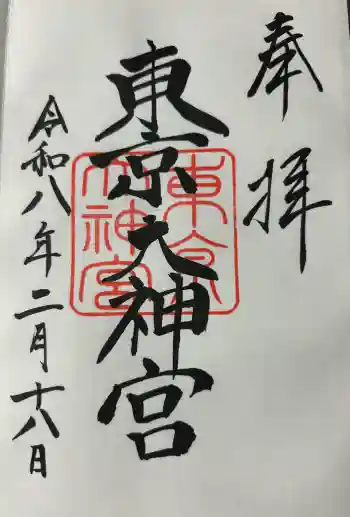 奉拝
東京大神宮
東京大神宮
令和八年二月十八日